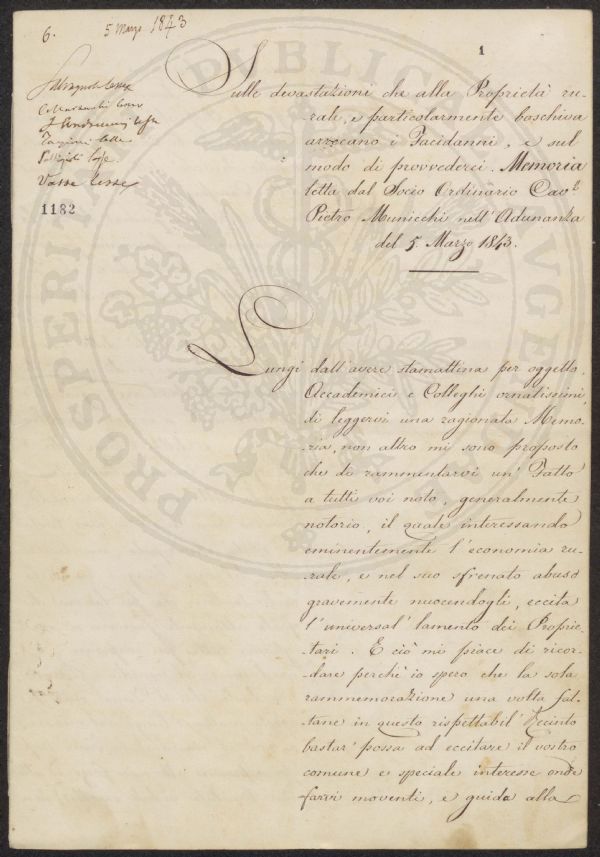 6.
5 Marzo 1843
1
Salvagnoli lesse
lesse
Vasse lesse
1182
Sulle devastazioni che alla Proprietà ru-
rale, e particolarmente boschiva
arrecano i Facidanni, e sul
modo di provvederci. Memoria
letta dal Socio Ordinario Cav.e
Pietro Municchi nell'Adunanza
del 5. Marzo 1843.
Lungi dall'avere stamattina per oggetto,
Accademici e Colleghi ornatissimi,
di leggervi una ragionata Memo-
ria, non altro mi sono proposto
che di rammentarvi un' Fatto
a tutti voi noto, generalmente
notorio, il quale interessando
eminentemente l'economia ru-
rale, e nel suo sfrenato abuso
gravemente nuocendogli, eccita
l'universal' lamento dei Proprie-
tari. E ciò mi piace di ricor-
dare perchè io spero che la sola
rammemorazione una volta fat-
tane in questo rispettabil' Recinto
bastar' possa ad eccitare il vostro
comune e speciale interesse onde
farvi moventi, e guida alla
PROSPERITATI PUBLICAE AUGENDAE